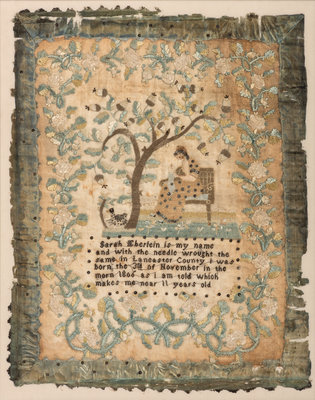 Sarah Eberlein is my name
and with the needle wrought the
same in Lancaster County I was
born the of November in the
morn 1806 as I am told which
makes me near 11 years old